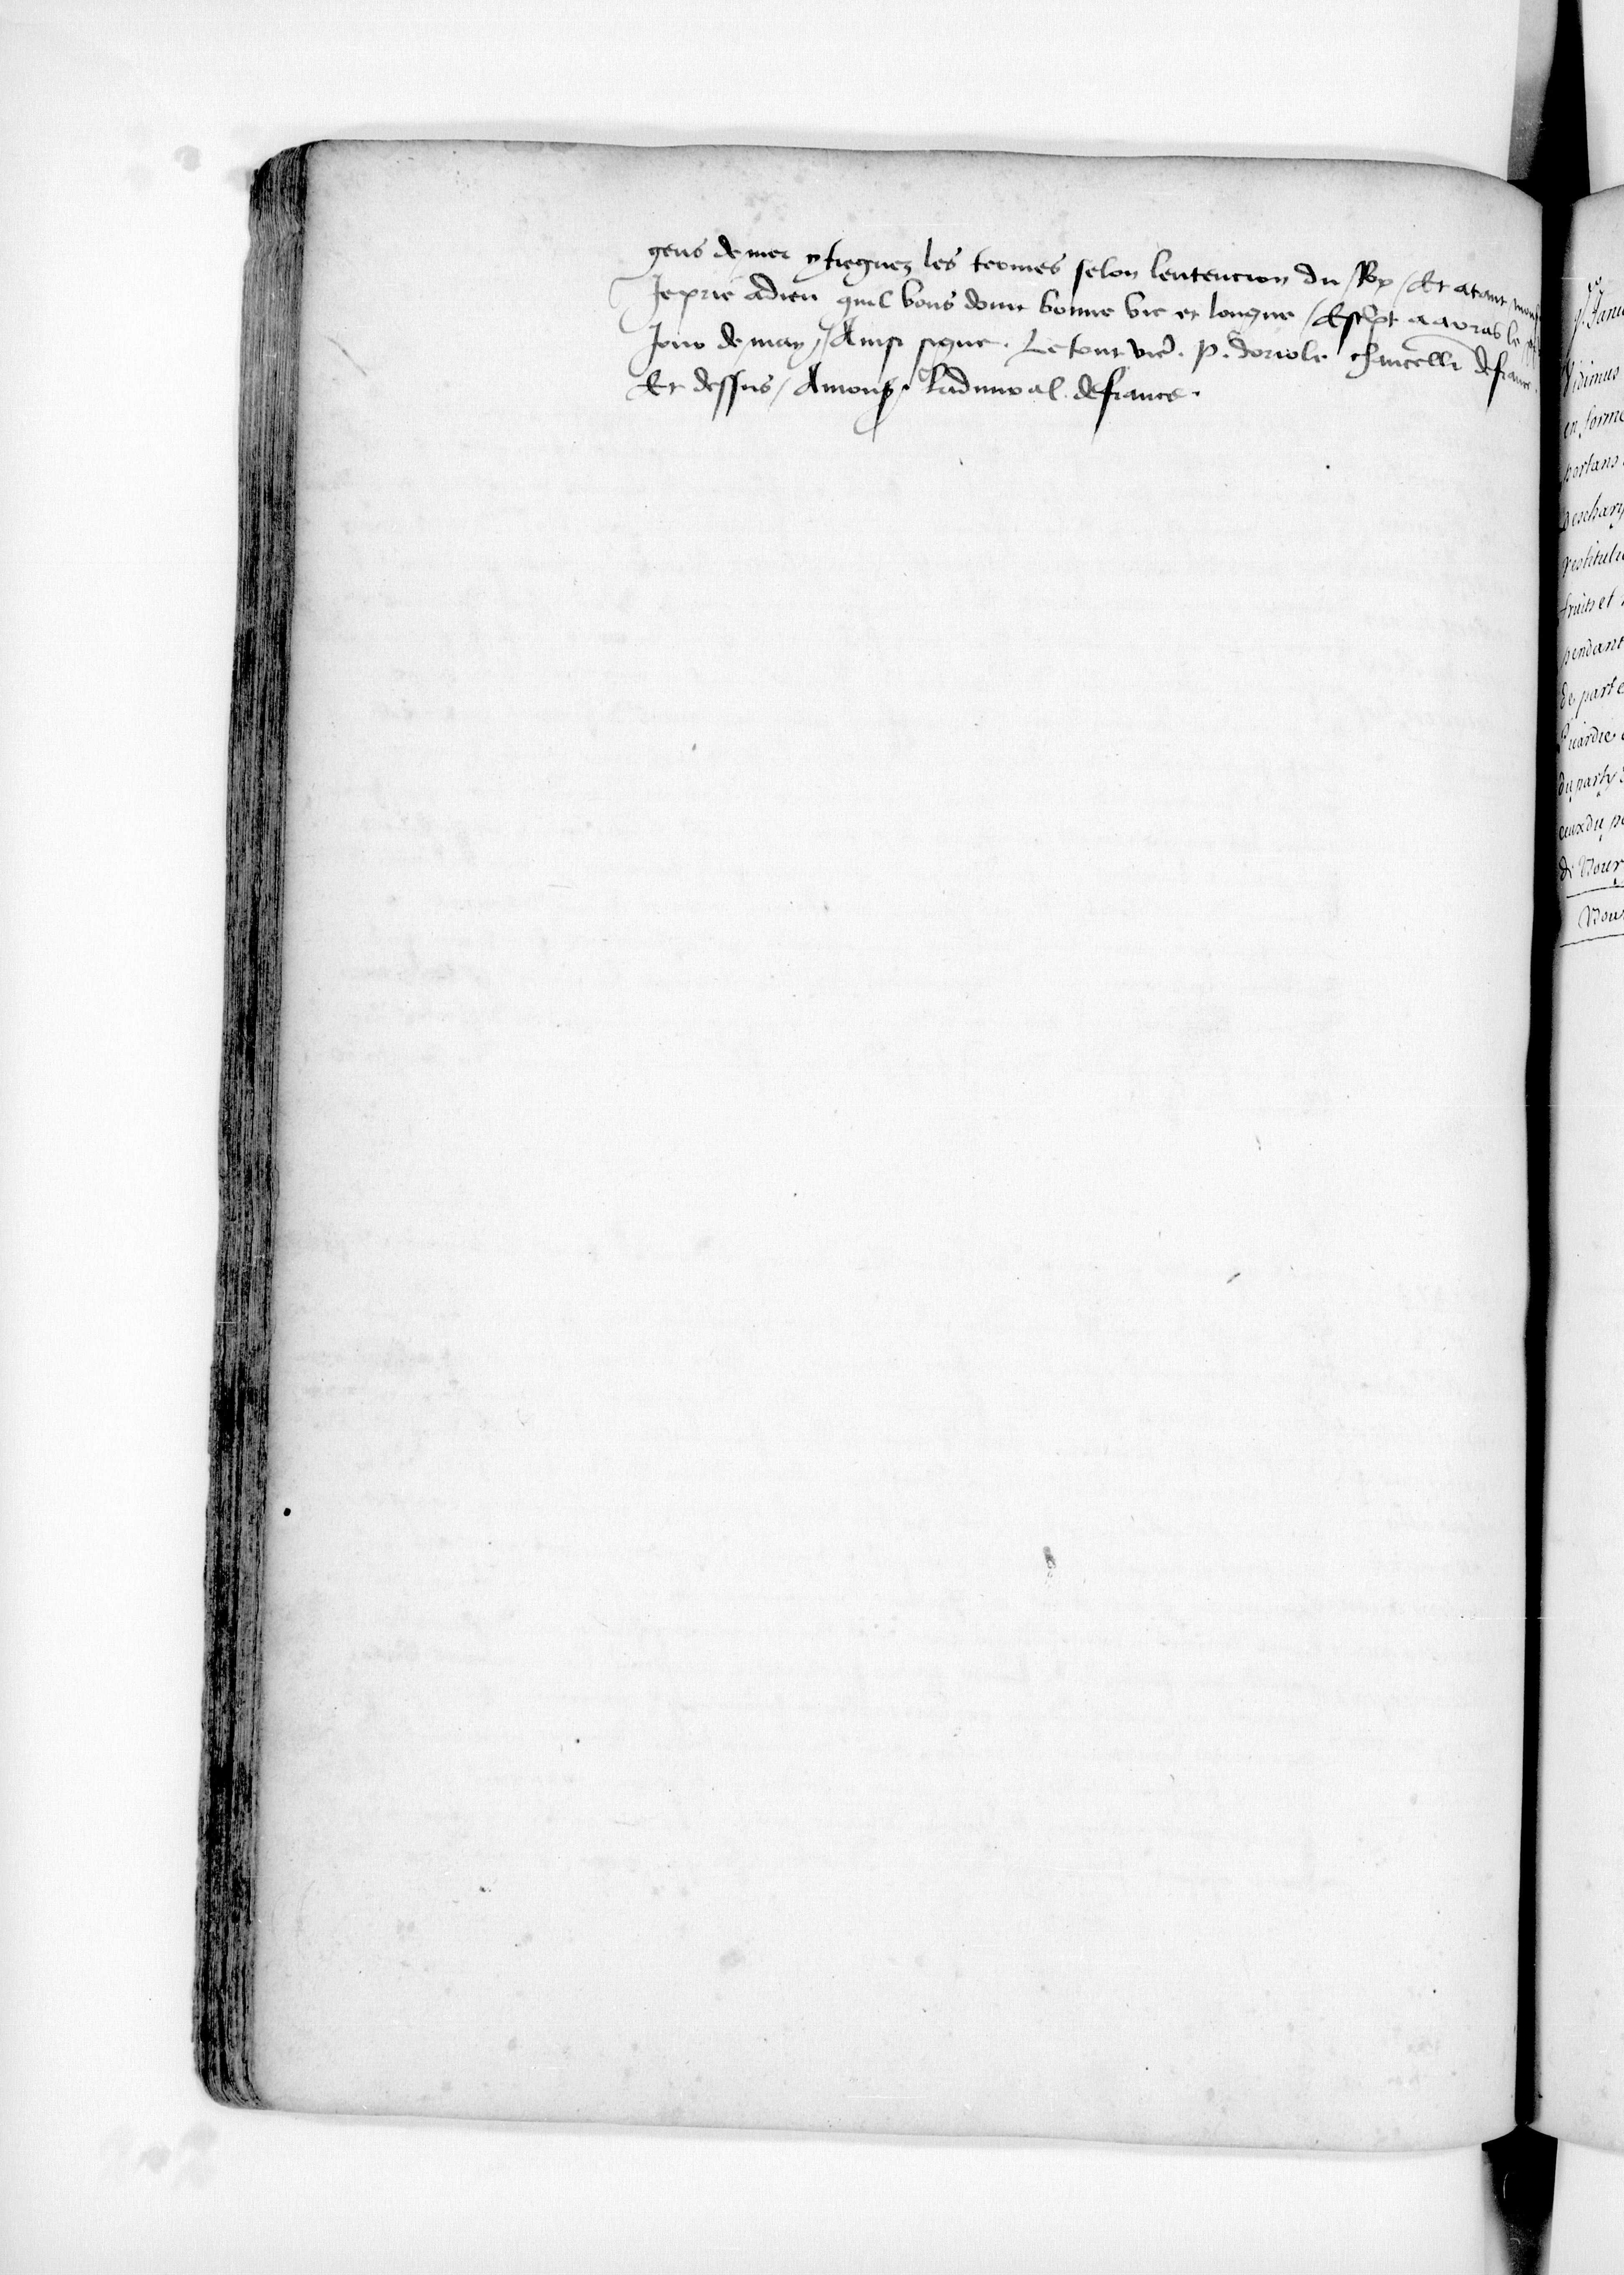 gens de mer y tiegnez les termes selon lentencion du Roy / Et atant mons
Je prie adieu quil vous donne bonne vie et longue / Escript a arras le
Jour de may / Ainsi signe . Le tout vre . P. doriole chancellr de france .
Et dessus / Amons . ladmiral de france .
Vidimus
en forme
portans
restituti
fruits et
pendant
de part e
Picardie
du party
ceux du p
de Bour
Bou